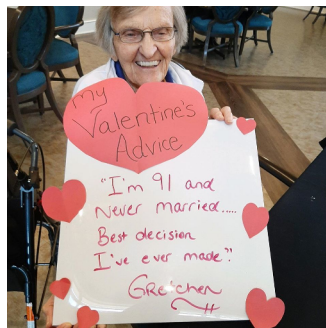 my
Valentine's
Advice
"I'm 91 and
never married.....
Best decision
I've ever made"
Gretchen